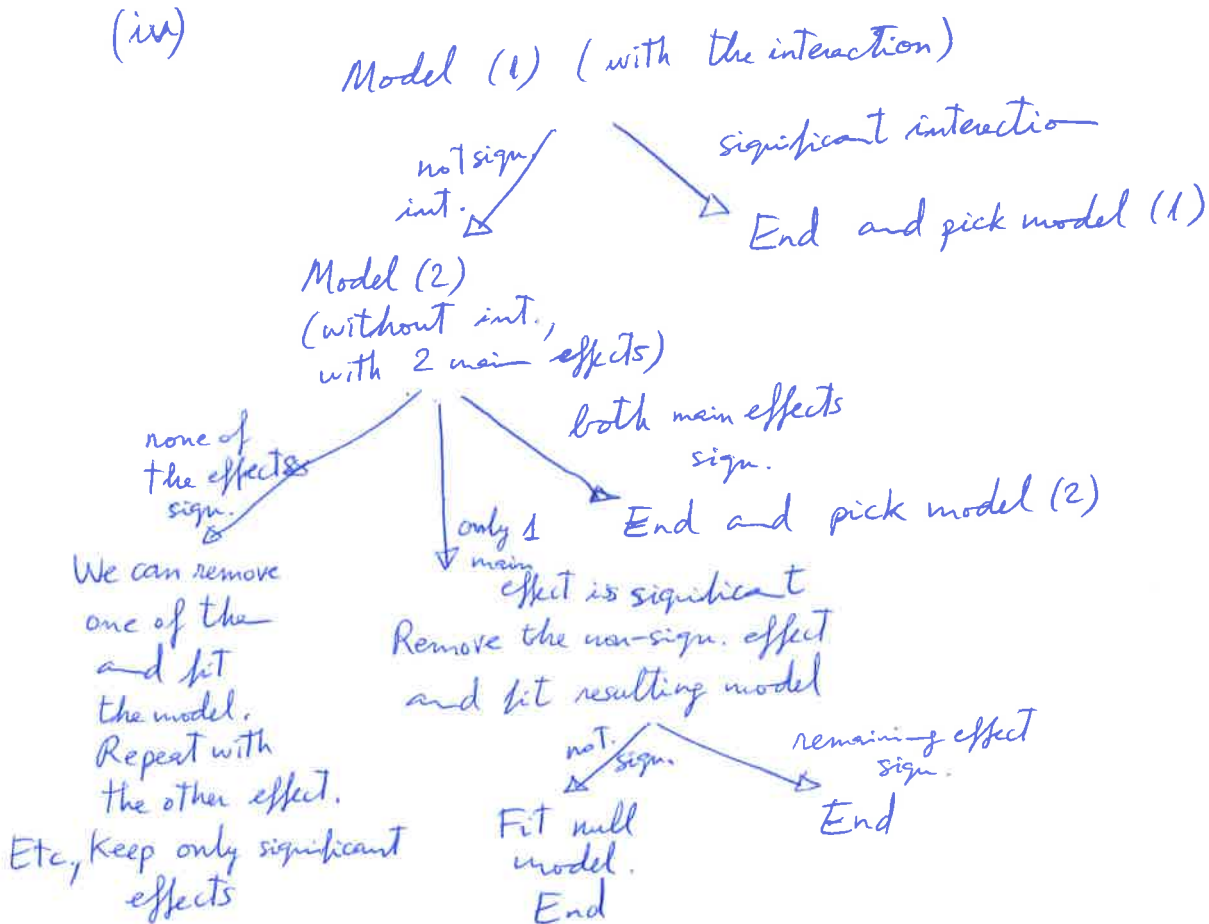 (iv)
Model (1) (with the interaction)
not sign.
int.
significant interaction
End and pick model (1)
Model (2)
(without int.,
with 2 main effects)
none of
the effects
sign.
both main effects
sign.
End and pick model (2)
only 1
main
effect is significant
We can remove
one of the
and fit
the model.
Repeat with
the other effect.
Etc., Keep only significant
effects
Remove the non-sign. effect
and fit resulting model
not.
sign.
remaining effect
sign.
Fit null
model.
End
End